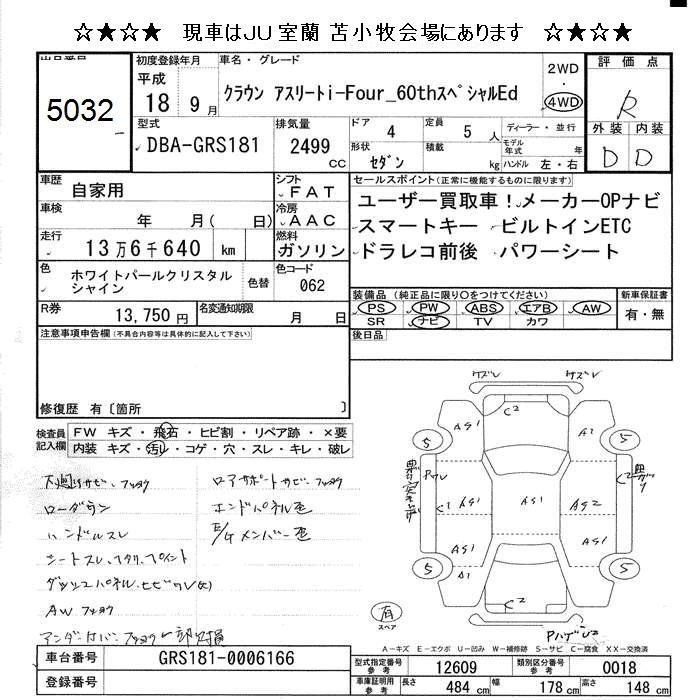 ☆★☆★ 現車はJU室蘭 苫小牧会場にあります ☆★☆★
出品番号
5032
初度登録年月
平成
18 9月
車名・グレード
クラウン アスリートi-Four_60thスペシャルEd
2WD
4WD
評価点
R
外装 内装
D D
型式
DBA-GRS181
排気量
2499 CC
ドア
4
定員
5 人
ディーラー・並行
形状
セダン
積載
kg
モデル年式 年
ハンドル 左・右
車歴
自家用
シフト
FAT
車検
年 月( 日)
冷房
AAC
走行
13万6千640 km
燃料
ガソリン
色
ホワイトパールクリスタルシャイン
色替
色コード
062
R券
13,750 円
名変通知期限
月 日
セールスポイント(正常に機能するものに限ります)
ユーザー買取車!メーカーOPナビ
スマートキー ビルトインETC
ドラレコ前後 パワーシート
装備品 (純正品に限り○をつけてください)
PS PW ABS エアB AW
SR ナビ TV カワ
新車保証書
有・無
後日品
注意事項申告欄(不具合内容等は具体的に記入して下さい)
修復歴 有〔箇所 〕
検査員記入欄
FW キズ・飛石・ヒビ割・リペア跡・×要
内装 キズ・汚レ・コゲ・穴・スレ・キレ・破レ
下廻りサビ、フショク
ローダウン
ハンドルスレ
シートスレ、ヘタリ、ペイント
ダッシュパネル、ヒビワレ(大)
AW フショク
アンダーカバー、フショク 一部欠損
ロアサポートサビ、フショク
エンドパネル色
E/Gメンバー色
ケズレ
ケズレ
C2
AS1
A2
5
5
C1
AS1
AS1
AS2
C2
AS1
AS1
5
5
A1
C2
PハゲU2
有
スペア
A－キズ E－エクボ U－凹み W－補修跡 S－サビ C－腐食 XX－交換済
車台番号
GRS181-0006166
登録番号
型式指定番号
参考
12609
類別区分番号
参考
0018
車庫証明用
参考
長さ
484 cm
幅
178 cm
高さ
148 cm